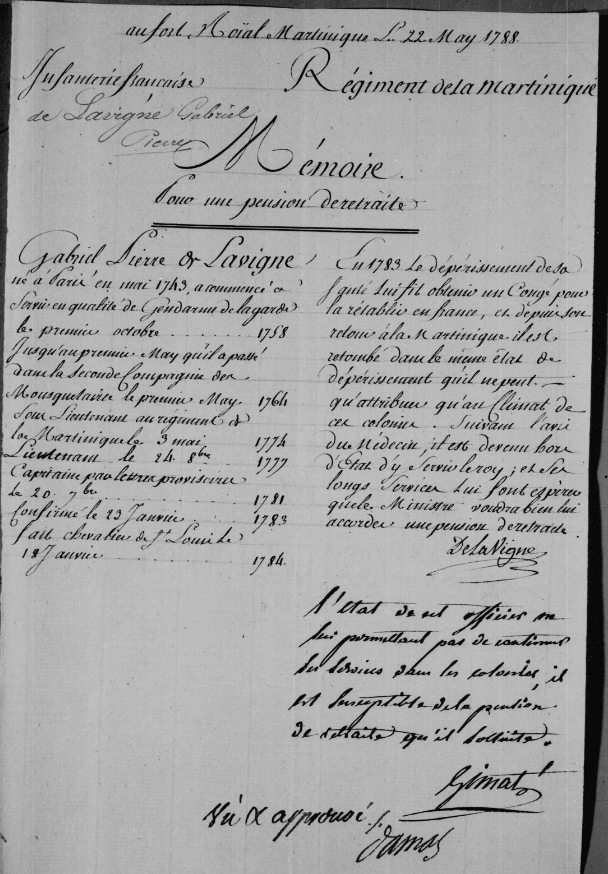 au fort Roïal Martinique Le 22 May 1788
Infanterie francaise
Régiment de la Martinique
de Lavigne Gabriel
Pierre
Mémoire
Pour une pension de retraite
Gabriel Pierre de Lavigne
né à Paris en mai 1743, a commencé à
Servir en qualité de Gendarme de la garde
le premier octobre 1758
Jusqu'au premier May qu'il a passé
dans la Seconde Compagnie des
Mousquetaires le premier May 1764
Sous Lieutenant au régiment de
la Martinique le 3 mai 1774
Lieutenant le 24 8bre 1777
Capitaine par lettres provisoires
le 20 7bre 1781
Confirmé le 23 Janvier 1783
fait chevalier de St Louis le
18 Janvier 1784
En 1783 Le dépérissement de sa
Santé Lui fit obtenir un Congé pour
la rétablir en france, et depuis son
retour à la Martinique il est
retombé dans le même état de
dépérissement qu'il ne peut
qu'attribuer qu'au Climat de
cet colonie. Suivant l'avis
du Médecin, il est devenu hors
d'Etat d'y Servir le roy ; et Ses
longs Services Lui font espérer
que le Ministre voudra bien lui
accorder une pension de retraite
De Lavigne
l'état de cet officier ne
lui permettant pas de continuer
ses services dans les colonies, il
est susceptible de la pension
de retraite qu'il sollicite.
Gimat
Vu & approuvé
Damas